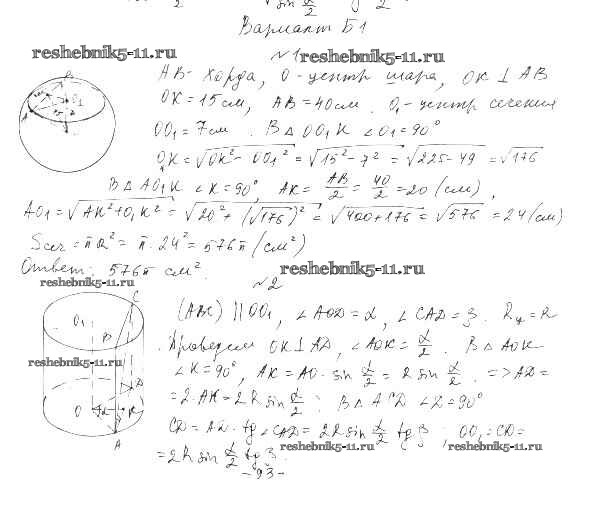 Вариант Б1
reshebnik5-11.ru
№1
reshebnik5-11.ru
AB - хорда, O - центр шара, OK ⊥ AB
OK = 15 см, AB = 40 см. O₁ - центр сечения
OO₁ = 7 см. В △ OO₁K ∠O₁ = 90°
O₁K = √OK² - OO₁² = √15² - 7² = √225 - 49 = √176
В △ AO₁K ∠K = 90°, AK = AB/2 = 40/2 = 20 (см),
AO₁ = √AK² + O₁K² = √20² + (√176)² = √400 + 176 = √576 = 24 (см)
Sсеч = πR² = π · 24² = 576π (см²)
Ответ: 576π см².
reshebnik5-11.ru
№2
reshebnik5-11.ru
(ABC) || OO₁, ∠AOD = α, ∠CAD = β. Rц = R
Проведем OK ⊥ AD, ∠AOK = α/2. В △ AOK
reshebnik5-11.ru
∠K = 90°, AK = AO · sin α/2 = R sin α/2. => AD =
= 2 · AK = 2R sin α/2. В △ ACD ∠D = 90°
CD = AD · tg ∠CAD = 2R sin α/2 tg β; OO₁ = CD =
reshebnik5-11.ru
reshebnik5-11.ru
= 2R sin α/2 tg β.
- 93 -